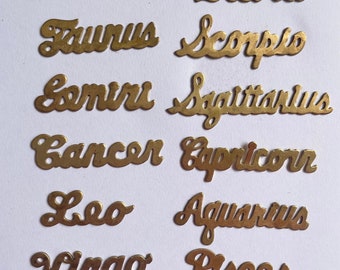 Libra
Taurus Scorpio
Gemini Sagittarius
Cancer Capricorn
Leo Aquarius
Virgo Pisces